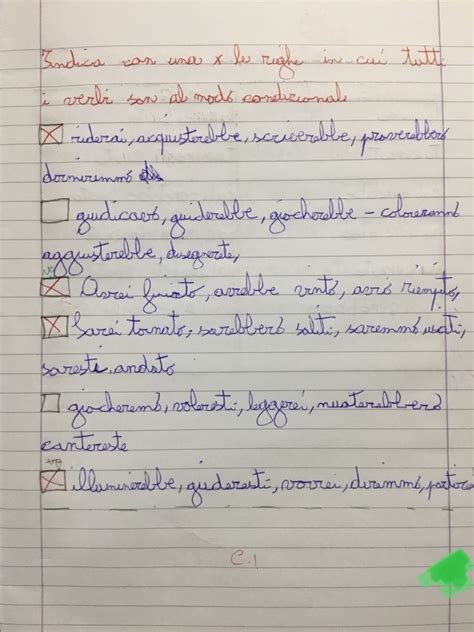 Indica con una x le righe in cui tutti
i verbi son al modo condizionale
riderai, acquisterebbe, scriverebbe, proverebbero
dormiremmo
giudicherò, guiderebbe, giocherebbe - coloreranno
aggiusterebbe, disegnerete,
Avrei finito, avrebbe vinto, avrò riempito,
Sarei tornato, sarebbero saliti, saremmo usciti,
sareste, andato
giocheremo, voleresti, leggerei, nuoterebbero
cantereste
illuminerebbe, guideresti, vorrei, diremmo,
C.1